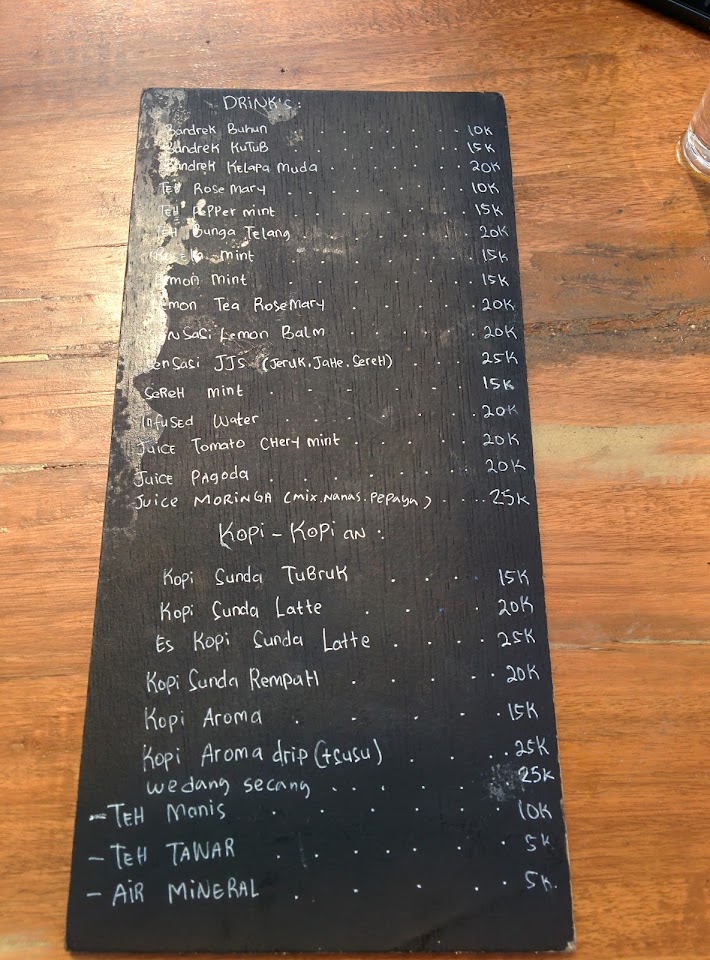 DRINK's:
Bandrek Buhun . . . . . . . 10K
Bandrek KUTUB . . . . . . . 15K
Bandrek KELAPA MUDA . . . . . . 20K
TEH ROSEMARY . . . . . . . 10K
TEH PEPPER mint . . . . . . 15K
TEH Bunga Telang . . . . . . . 20K
mint . . . . . . 15K
Lemon mint . . . . . . 15K
Lemon Tea Rosemary . . . . . 20K
SENSASI Lemon Balm . . . . . 20K
Sensasi JJS (Jeruk, Jahe, Sereh) . . . . 25K
SEREH mint . . . . . . . 15K
Infused Water . . . . . . . 20K
Juice Tomato CHERY mint . . . . . . 20K
Juice Pagoda . . . . . . . 20K
Juice MORINGA (mix.Nanas.Pepaya) . . ... 25K
KOPI - KOPI AN :
Kopi Sunda TUBRUK . . . . 15K
Kopi Sunda Latte . . . . 20K
ES Kopi Sunda Latte . . . . 25K
Kopi Sunda REMPAH . . . . . 20K
Kopi Aroma . . . . . . 15K
Kopi Aroma drip (+susu) . . . . 25K
wedang secang . . . . . . . 25K
- TEH Manis . . . . . . . 10K
- TEH TAWAR . . . . . . . 5K
- AIR MINERAL . . . . . 5K.